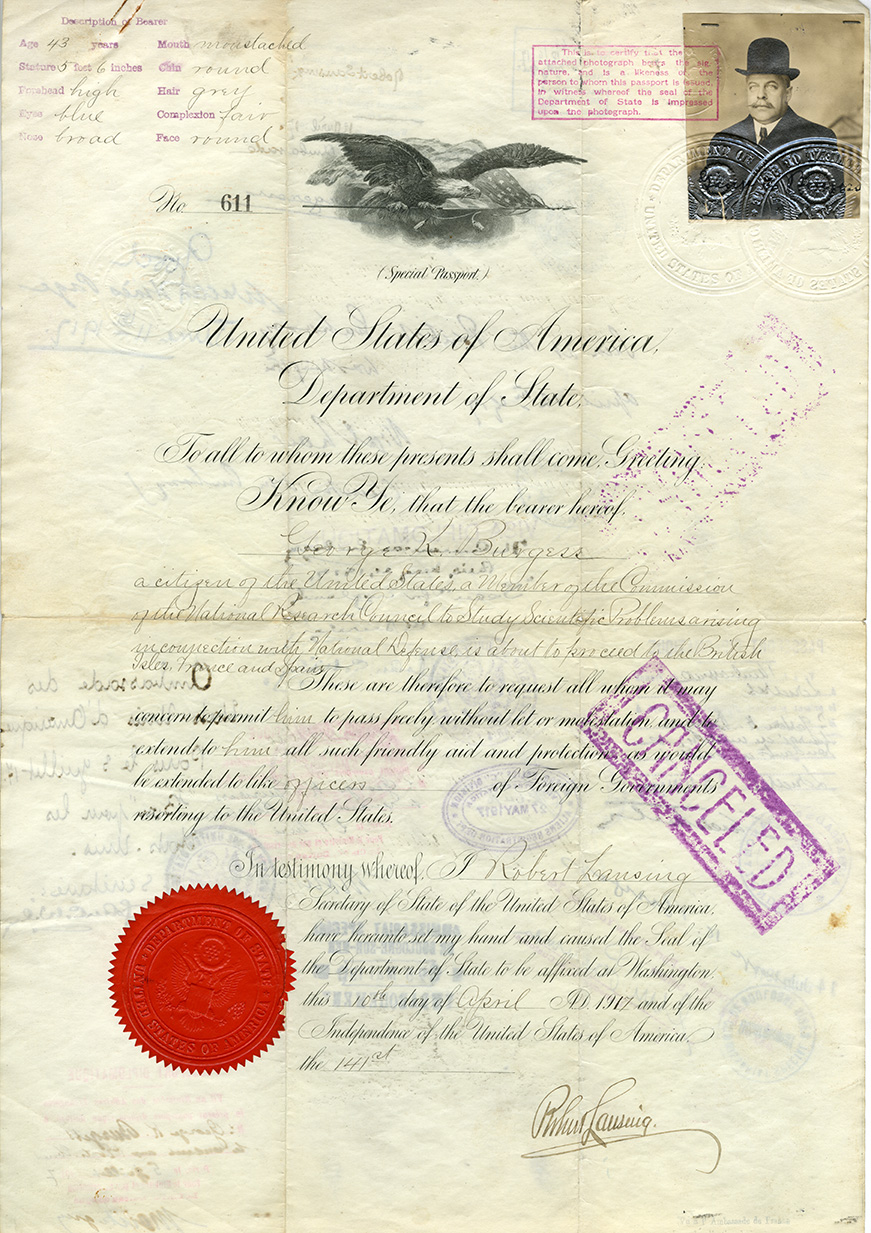 Description of Bearer
Age 43 years Mouth moustached
Stature 5 feet 6 inches Chin round
Forehead high Hair grey
Eyes blue Complexion fair
Nose broad Face round
This is to certify that the
attached photograph bears the sig
nature, and is a likeness of the
person to whom this passport is issued.
In witness whereof the seal of the
Department of State is impressed
upon the photograph.
No. 611
(Special Passport.)
United States of America,
Department of State,
To all to whom these presents shall come, Greeting,
Know Ye, that the bearer hereof,
George K. Burgess
a citizen of the United States, a Member of the Commission
of the National Research Council to Study Scientific Problems arising
in connection with National Defense, is about to proceed to the British
Isles, France and Spain
These are therefore to request all whom it may
concern to permit him to pass freely without let or molestation and to
extend to him all such friendly aid and protection, as would
be extended to like officers of Foreign Governments
resorting to the United States.
CANCELED
In testimony whereof, I Robert Lansing
Secretary of State of the United States of America,
have hereunto set my hand and caused the Seal of
the Department of State to be affixed at Washington,
this 10th day of April A.D. 1917 and of the
Independence of the United States of America,
the 141st
DEPARTMENT OF STATE
UNITED STATES OF AMERICA
Robert Lansing.